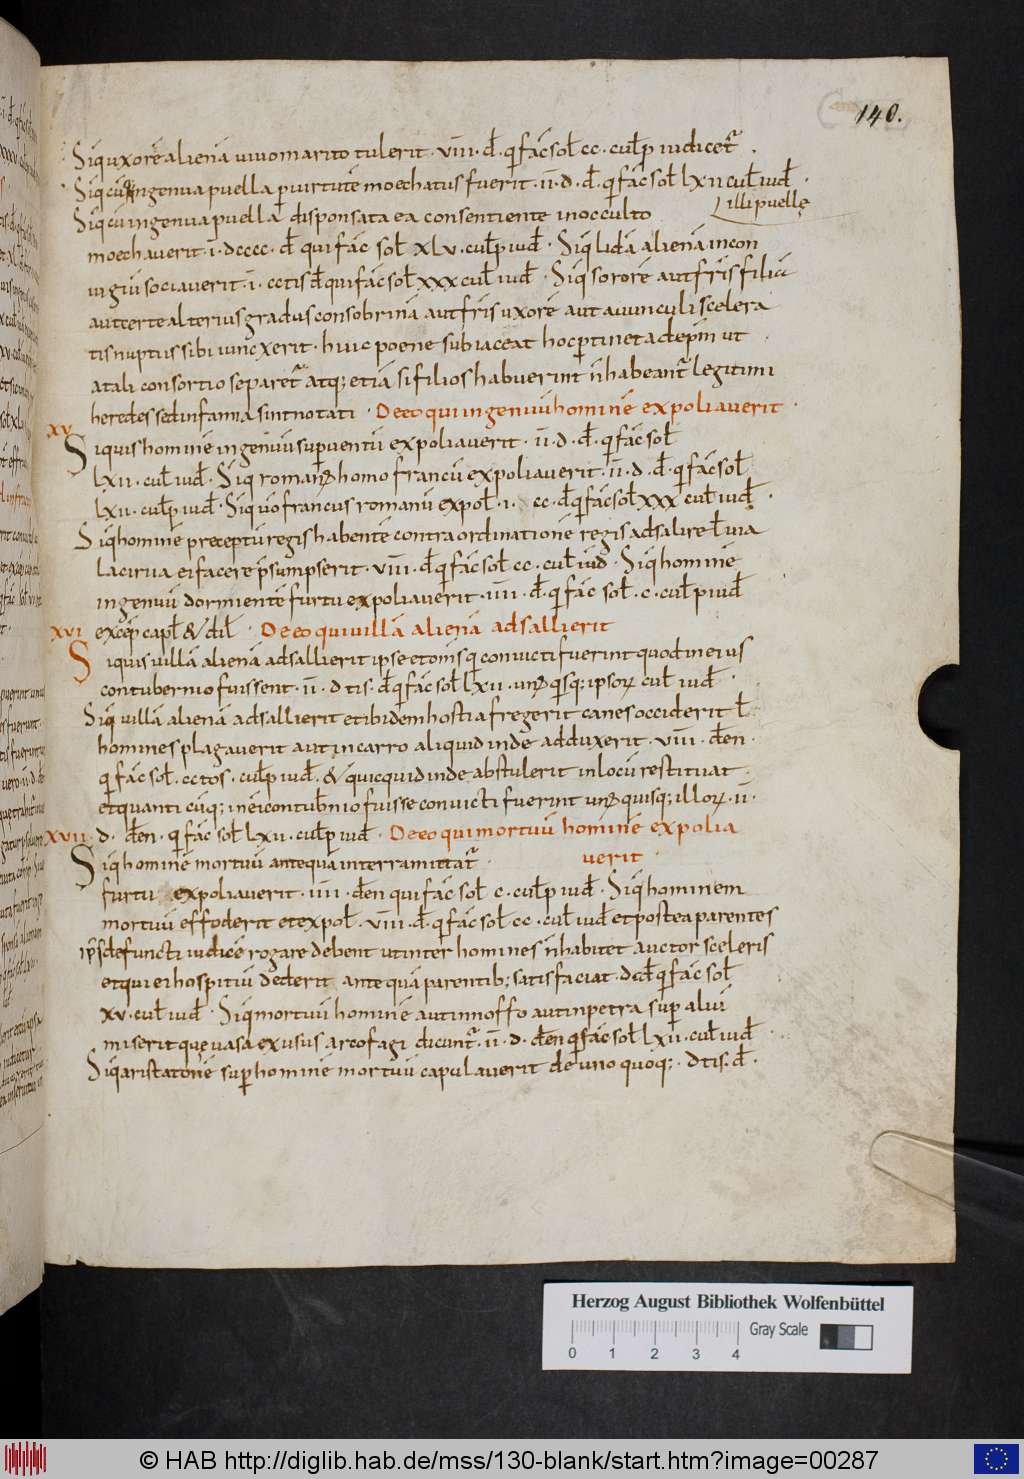 140.
Siq uxorē alienā uiuo marito tulerit · VIII · đ · q fac̄ sol̄ · CC · cul̄p iudicet̄ ·
Siq cū ingenua puella p uirtute moechatus fuerit · II · D · đ · q fac̄ sol̄ LXII cul̄ iuđ ·
Siq cū ingenua puella disponsata ea consentiente inocculto
illi puellę
moechauerit · I · DCCCC · đ qui fac̄ sol̄ XLV · cul̄p iuđ · Siq lidā alienā in con
iugiū sociauerit · I · CC tis đ qui fac̄ sol̄ XXX cul̄ iuđ · Siq sororē aut fr̄is filiā
aut certe alterius gradus consobrinā aut fr̄is uxorē aut auunculi scelera
tis nuptus sibi iuncxerit · huic poene subiaceat hoc ptinet ad epm̄ ut
a tali consortio separet̄ atq; etiā si filios habuerint n̄ habeant̄ legitimi
heredes sed infamia sint notati · De eo qui ingenuū hominē expoliauerit ·
XV
Siquis hominē ingenuū supuentū expoliauerit · II · D · đ · q fac̄ sol̄
LXII · cul̄ iuđ · Siq romanꝰ homo francū expoliauerit · II · D · đ · q fac̄ sol̄
LXII · cul̄p iuđ · Siq ūo francus romanū expol̄ · I · CC · đ q fac̄ sol̄ XXX cul̄ iuđ ·
Siq hominē preceptū regis habentē contra ordinationē regis adsalire l̄ uia
lacinia ei facere p̄sumpserit · VIII · đ q fac̄ sol̄ CC · cul̄ iuđ · Siq hominē
ingenuū dormientē furtu expoliauerit · IIII · đ · q fac̄ sol̄ · C · cul̄p iuđ
XVI excep̄ capl̄ & dil̄ · De eo qui uillā alienā adsallierit
Siquis uillā alienā adsallierit ipse et om̄s q conuicti fuerint quod in eius
contubernio fuissent · II · D tis · đ q fac̄ sol̄ LXII · unꝰ qsq; ipsoꝝ cul̄ iuđ ·
Siq uillā alienā adsallierit et ibidem hostia fregerit canes occiderit l̄
homines plagauerit aut in carro aliquid inde adduxerit · VIII · đen ·
q fac̄ sol̄ · CC tos · cul̄p iuđ · & quicquid inde abstulerit in locū restituat ·
et quanti cūq; in ei contub̄nio fuisse conuicti fuerint unꝰ quisq; illoꝝ · II ·
XVII · D · đen · q fac̄ sol̄ LXII · cul̄p iuđ · De eo qui mortuū hominē expolia
uerit ·
Siq hominē mortuū antequā in terra mittat̄ ·
furtu expoliauerit · IIII · đen qui fac̄ sol̄ C · cul̄p iuđ · Siq hominem
mortuū effoderit et expol̄ · VIII · đ · q fac̄ sol̄ CC · cul̄ iuđ et postea parentes
ip̄s defuncti iudicē rogare debent ut inter homines n̄ habitet auctor sceleris
et qui ei hospitiū dederit ante quā parentib; satisfaciat · DC đ q fac̄ sol̄
XV · cul̄ iuđ · Siq mortuū hominē aut in noffo aut in petra sup aliū
miserit que uasa ex usu sarcofagi dicunt̄ · II · D · đen q fac̄ sol̄ LXII · cul̄ iuđ ·
Siq aristatonē sup hominē mortuū capulauerit de uno quoq; · D tis · đ ·
Herzog August Bibliothek Wolfenbüttel
Gray Scale
0 1 2 3 4
© HAB http://diglib.hab.de/mss/130-blank/start.htm?image=00287